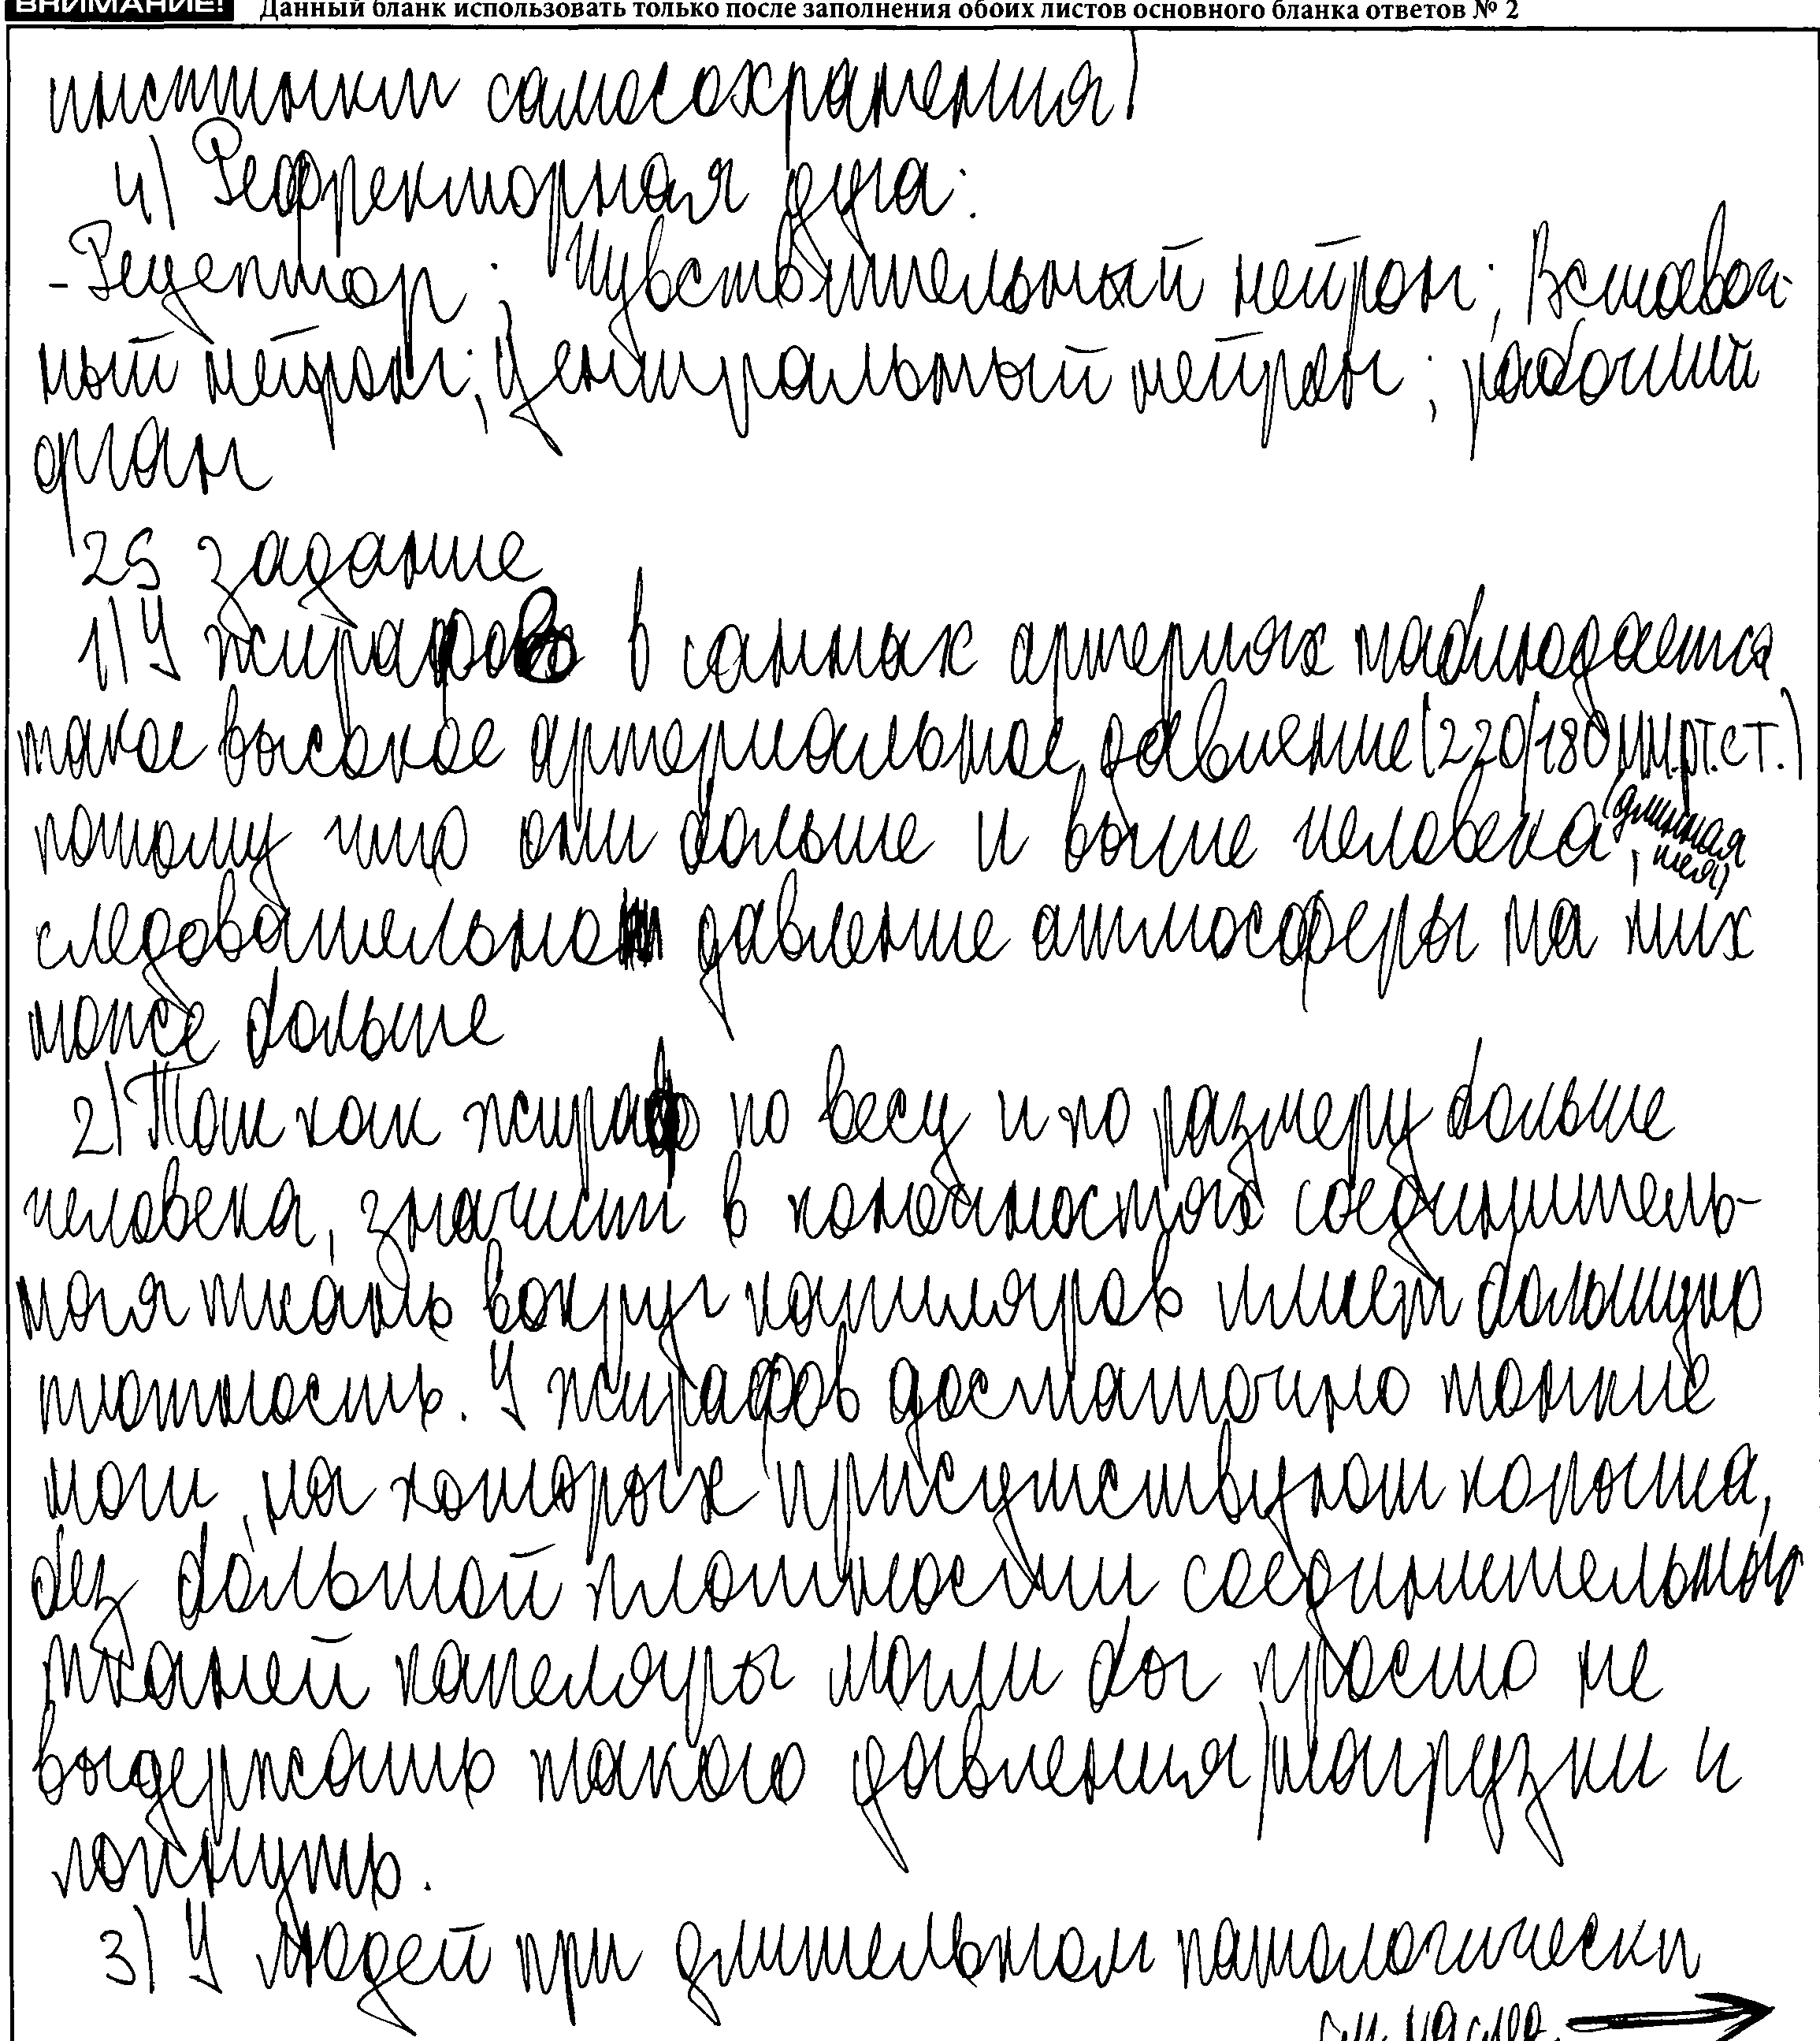 ВНИМАНИЕ! Данный бланк использовать только после заполнения обоих листов основного бланка ответов № 2
инстинкт самосохранения)
4) Рефректорная дуга:
- Рецептор; Чувствительный нейрон; Вставоч-
ный нейрон; Центральный нейрон; рабочий
орган
25 задание
1) У жирафов в сонных артериях наблюдается
такое высокое артериальное давление (220/180 мм.рт.ст.)
потому что они больше и выше человека (длинная
шея),
следовательно давление атмосферы на них
тоже больше
2) Так как жираф по весу и по размеру больше
человека, значит в конечностях соединитель-
ная ткань вокруг капиляров имеет большую
плотность. У жирафов достаточно тонкие
ноги, на которых присутствуют копыта,
без большой плотности соединительной
тканей капеляры могли бы просто не
выдержать такого давления/нагрузки и
лопнуть.
3) У людей при длительном патологически
см. на след.